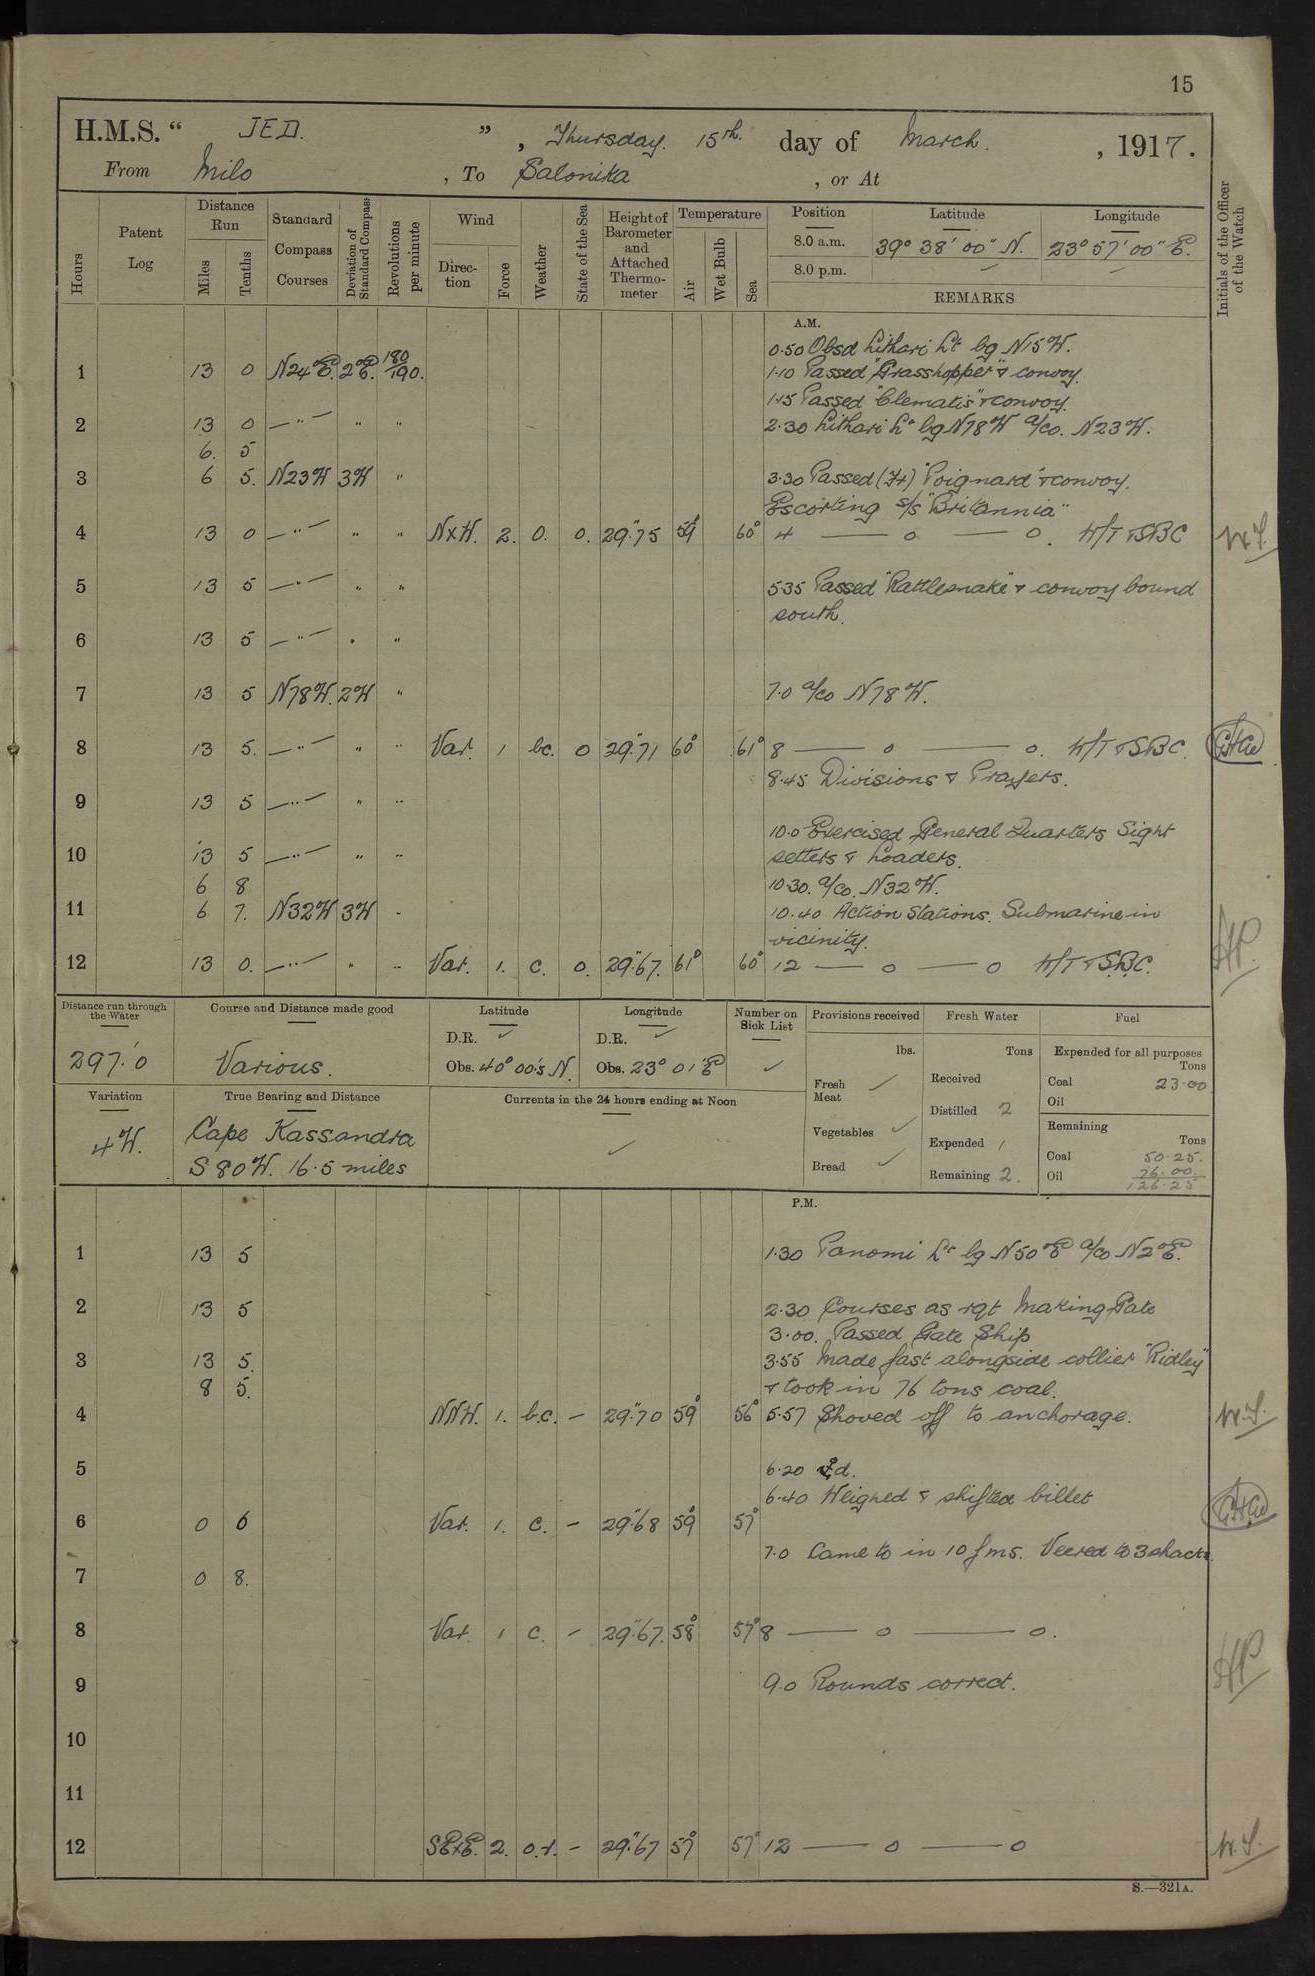 15
H.M.S. “ JED. ” , Thursday. 15th. day of March. , 1917.
From Milo , To Salonika , or At
Hours
Patent Log
Distance Run
Miles
Tenths
Standard Compass Courses
Deviation of Standard Compass
Revolutions per minute
Wind
Direction
Force
Weather
State of the Sea
Height of Barometer and Attached Thermometer
Temperature
Air
Wet Bulb
Sea
Position Latitude Longitude
8.0 a.m. 39° 38' 00" N. 23° 57' 00" E.
8.0 p.m. — —
REMARKS
Initials of the Officer of the Watch
A.M.
0.50 Obsd Lithari Lt bg N15W.
1 13 0 N24°E. 2°E. 180/190. 1.10 Passed "Grasshopper" & convoy.
1.15 Passed "Clematis" & convoy.
2 13 0 —"— " " 2.30 Lithari Lt bg N78W a/co. N23W.
6. 5
3 6 5. N23W 3W " 3.30 Passed (Fr) "Poignard" & convoy.
Escorting s/s "Britannia"
4 13 0 —"— " " NxW. 2. O. 0. 29."75 59° 60° 4 — o — o. W/T & SBC W.S.
5 13 5 —"— " " 5.35 Passed "Rattlesnake" & convoy bound
south.
6 13 5 —"— " "
7 13 5 N78W. 2W " 7.0 a/co N78W.
8 13 5. —"— " " Var. 1 bc. 0 29."71 60° 61° 8 — o — o. W/T & SBC.
8.45 Divisions & Prayers.
9 13 5 —"— " "
10.0 Exercised General Quarters Sight
10 13 5 —"— " " setters & Loaders.
6 8 10.30. a/co. N32W.
11 6 7. N32W 3W " 10.40 Action Stations. Submarine in
vicinity.
12 13 0. —"— " " Var. 1. C. 0. 29."67. 61° 60° 12 — o — o W/T & S.B.C. HP.
Distance run through the Water
297.'0
Course and Distance made good
Various.
Latitude
D.R. ✓
Obs. 40° 00'.5 N.
Longitude
D.R. ✓
Obs. 23° 01' E
Number on Sick List
✓
Provisions received
lbs.
Fresh Meat ✓
Vegetables ✓
Bread ✓
Fresh Water
Tons
Received
Distilled 2
Expended 1
Remaining 2.
Fuel
Expended for all purposes
Tons
Coal 23.00
Oil
Remaining
Tons
Coal 50.25.
Oil 76.00.
126.25
Variation
4W.
True Bearing and Distance
Cape Kassandra
S80W. 16.5 miles
Currents in the 24 hours ending at Noon
✓
P.M.
1 13 5 1.30 Panomi Lt bg N50°E a/co N2°E.
2 13 5 2.30 Courses as rqt Making Gate
3.00. Passed Gate Ship
3 13 5. 3.55 Made fast alongside collier "Ridley"
8 5. & took in 76 tons coal.
4 NNW. 1. b.c. - 29."70 59° 56° 5.57 Shoved off to anchorage. W.S.
5 6.20 ⚓d.
6.40 Weighed & shifted billet
6 0 6 Var. 1. C. - 29."68 59° 57°
7.0 Came to in 10 fms. Veered to 3 shackles
7 0 8.
8 Var. 1 C. - 29."67. 58° 57° 8 — o — o.
HP
9 9.0 Rounds correct.
10
11
12 SExE. 2. o.r. - 29."67 57° 57° 12 — o — o W.S.
S.—321A.